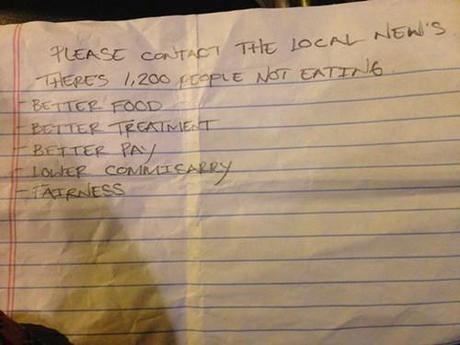 PLEASE CONTACT THE LOCAL NEW'S
THERE'S 1,200 PEOPLE NOT EATING
- BETTER FOOD
- BETTER TREATMENT
- BETTER PAY
- LOWER COMMISARRY
- FAIRNESS